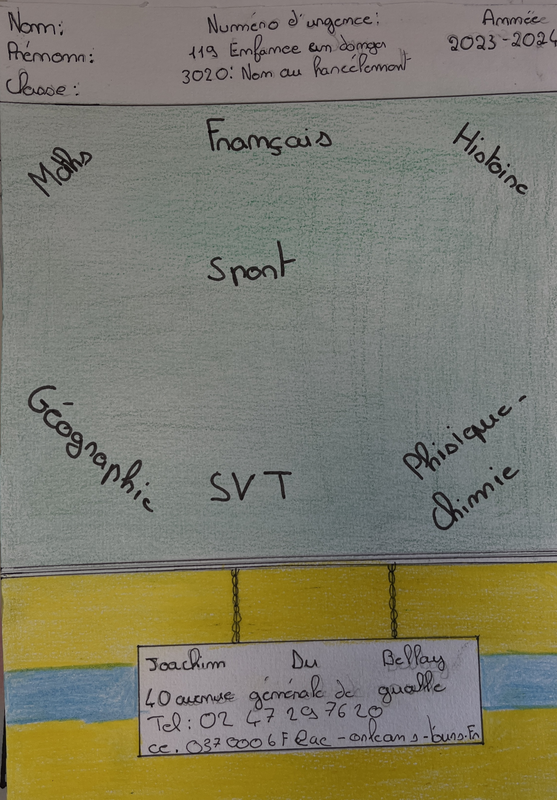 Nom:
Numéro d'urgence:
Année
Prénom:
119 Enfance en danger
2023-2024
Classe:
3020: Non au harcèlement
Maths
Français
Histoire
Sport
Géographie
SVT
Phisique-
chimie
Joachim Du Bellay
40 avenue générale de gualle
Tel: 02 47 29 76 20
ce. 0370006F @ac-orleans-tours.fr